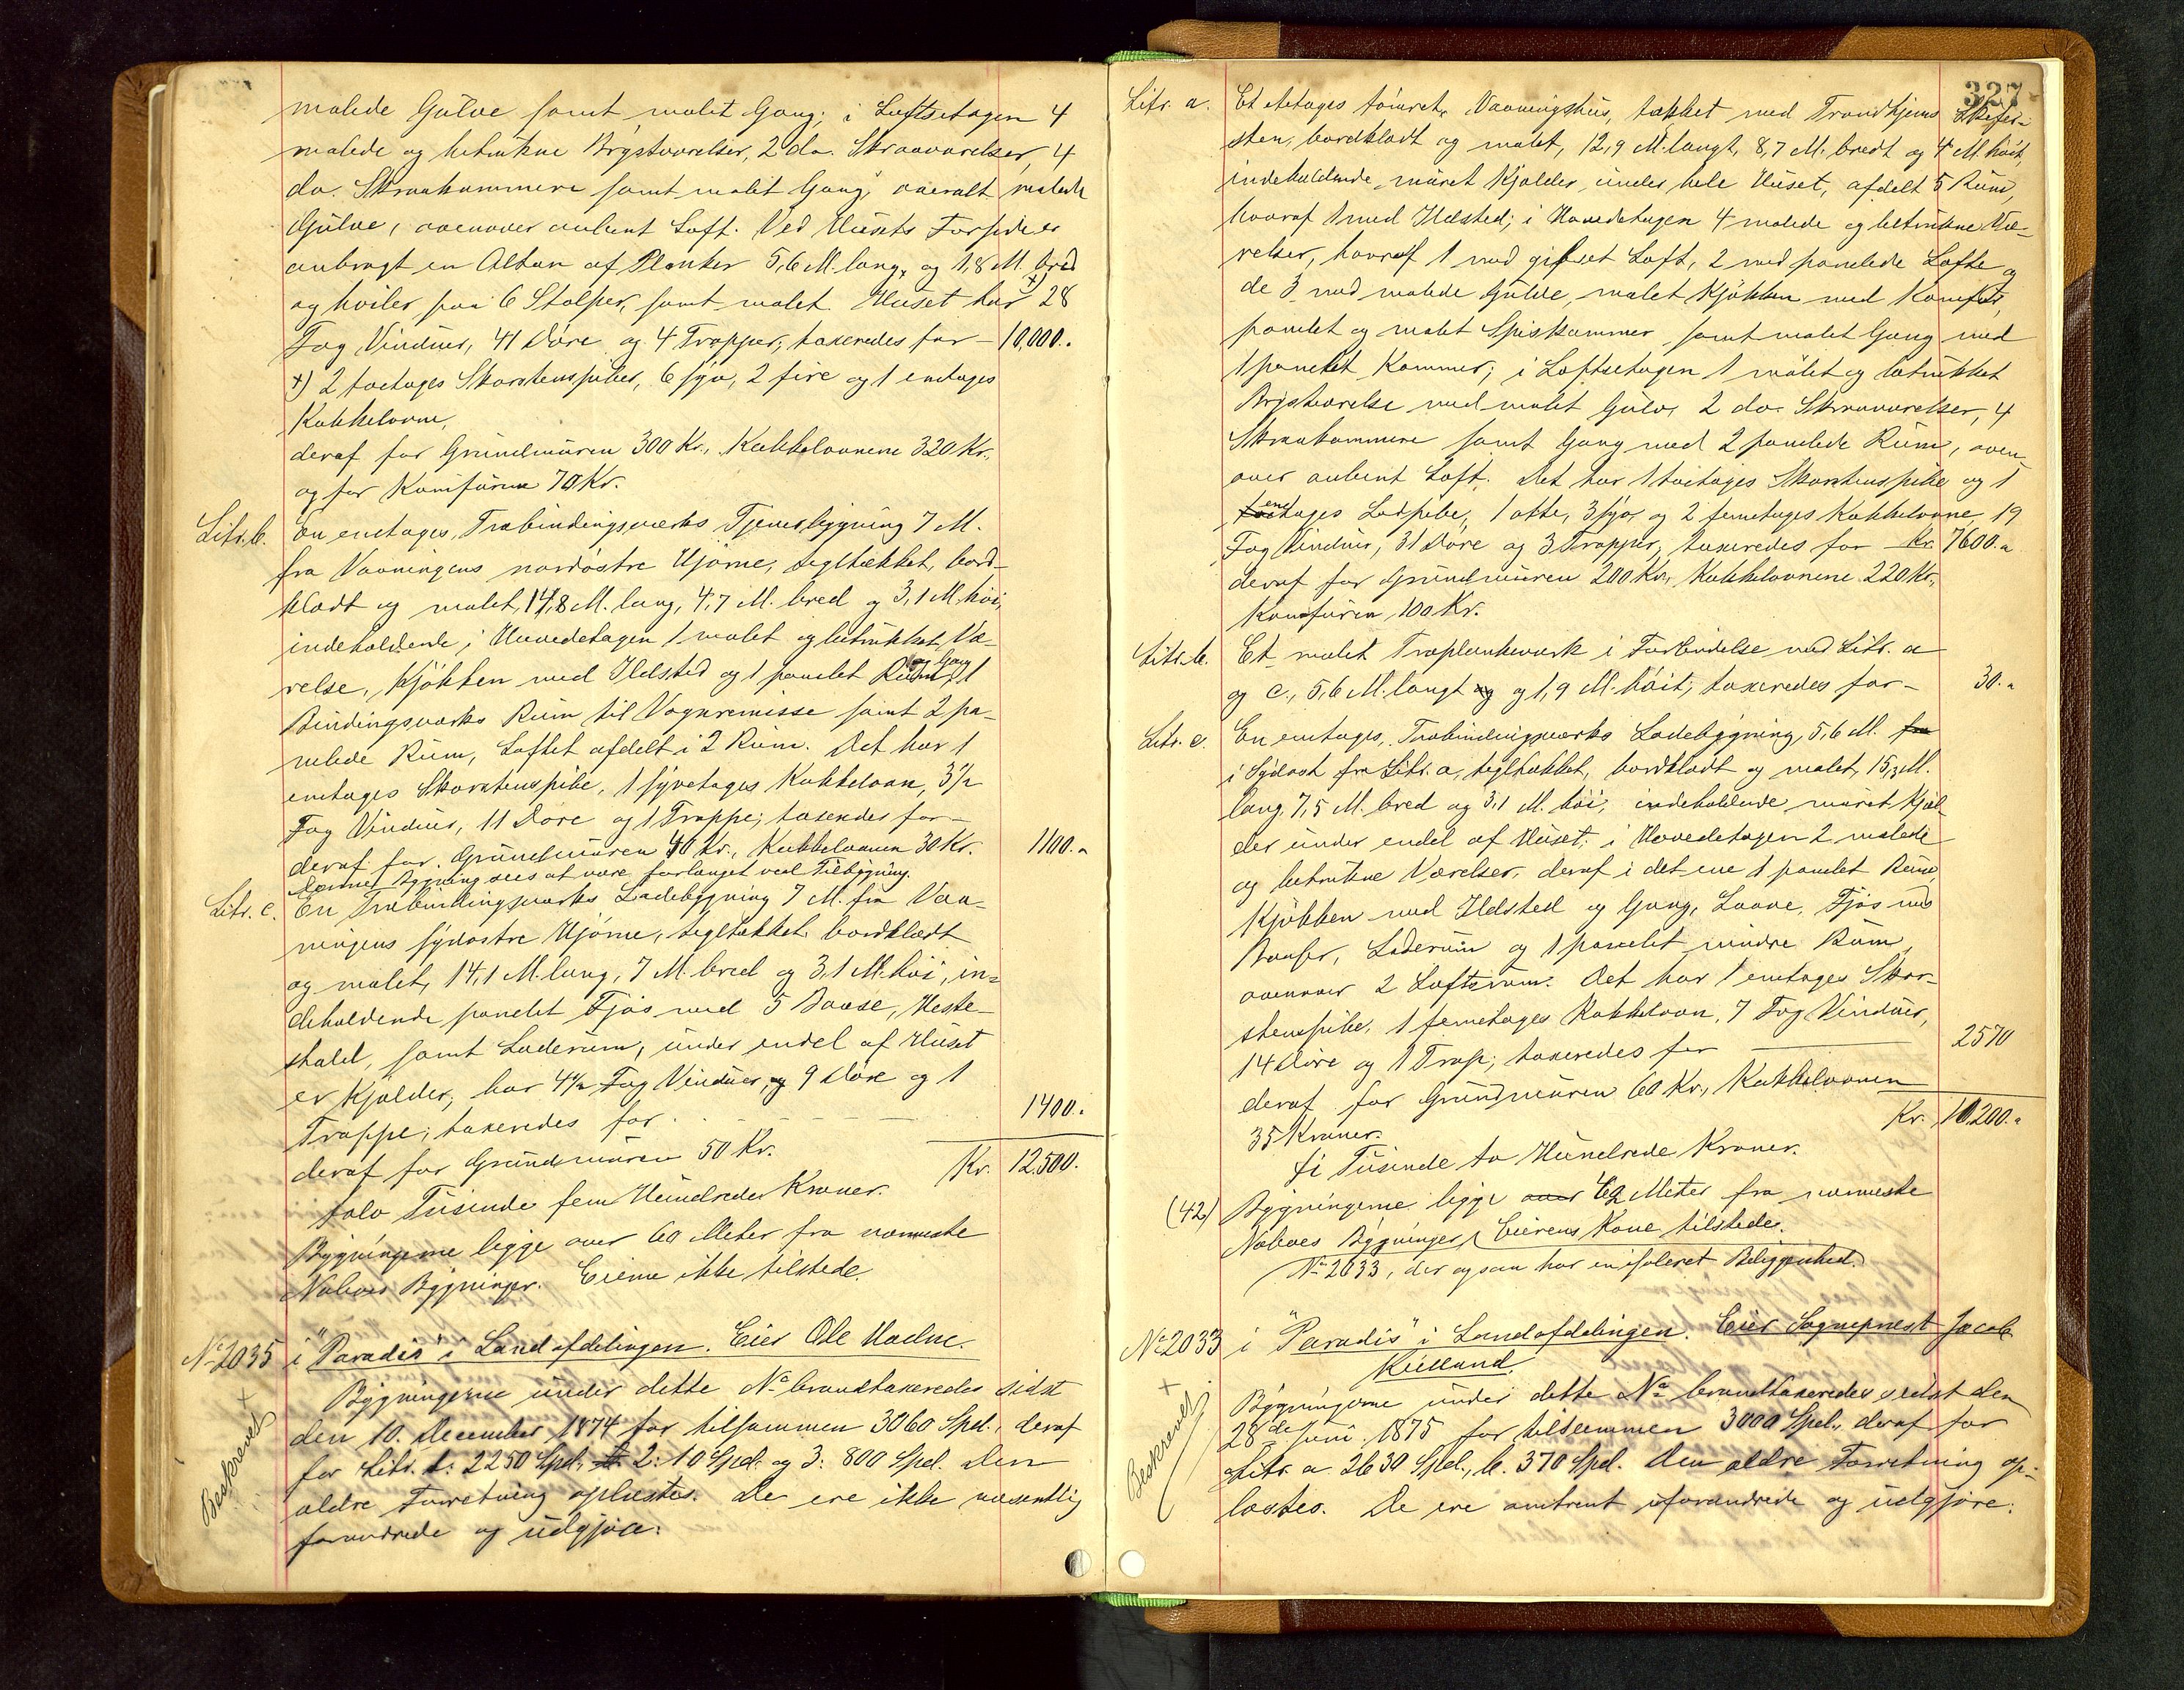 malede Gulve samt malet Gang; i Loftsetagen 4
malede og betrukne Brystværelser, 2 do. Skraaværelser, 4
do. Skraakammere samt malet Gang, overalt malede
Gulve, ovenover aabent Loft. Ved Husets Forside er
anbragt en Altan af Planker 5,6 M. lang, og 1,8 M. bred
og hviler paa 6 Stolper, samt malet. Huset har +) 28
Fag Vinduer, 41 Döre og 4 Trapper; taxeredes for — 10,000.
+) 2 toetages Skorstenspiber, 6 syv, 2 fire og 1 enetages
Kakkelovne,
deraf for Grundmuren 300 Kr., Kakkelovnene 320 Kr.,
og for Komfuren 70 Kr.
Litr. b. En enetages, Træbindingsværks Tjenerbygning 7 M.
fra Vaaningens nordöstre Hjörne, tegltækket, bord-
klædt og malet, 14,8 M. lang, 4,7 M. bred og 3,1 M. höi,
indeholdende i Hovedetagen 1 malet og betrukket Væ-
relse, Kjökken med Ildsted og 1 panelet Rum og Gang, 1
Bindingsværks Rum til Vognremisse samt 2 pa-
nelede Rum, Loftet afdelt i 2 Rum. Det har 1
enetages Skorstenspibe, 1 syvetages Kakkelovn, 3 1/2
Fag Vinduer, 11 Döre og 1 Trappe; taxeredes for — 1100.
deraf for Grundmuren 40 Kr., Kakkelovnen 30 Kr.
Denne Bygning sees at være forlænget ved Tilbygning.
Litr. c. En Træbindingsværks Ladebygning 7 M. fra Vaa-
ningens sydöstre Hjörne, tegltækket bordklædt
og malet, 14,1 M. lang, 7 M. bred og 3,1 M. höi, in-
deholdende panelet Fjös med 5 Baase, Heste-
stald, samt Laderum, under endel af Huset
er Kjælder, har 4 1/2 Fag Vinduer, og 9 Döre og 1
Trappe; taxeredes for 1400.
deraf for Grundmuren 50 Kr. Kr. 12,500.
tolv Tusinde fem Hundrede Kroner.
Bygningerne ligge over 60 Meter fra nærmeste
Naboes Bygninger. Eierne ikke tilstede.
No 2035 i "Paradis" i Landafdelingen. Eier Ole Hadne.
Bygningerne under dette No brandtaxeredes sidst
den 10. December 1874 for tilsammen 3060 Spd., deraf
for Litr. 1: 2250 Spd., 2: 10 Spd. og 3: 800 Spd. Den
ældre Forretning oplæstes. De ere ikke væsentlig
forandrede og udgjöre:
Beskrevet +
327
Litr. a. Et etetages tömret Vaaningshus, tækket med Trondhjems Skifer-
sten, bordklædt og malet, 12,9 M. langt, 8,7 M. bredt og 4 M. höit,
indeholdende muret Kjælder under hele Huset, afdelt 5 Rum,
hvoraf 1 med Ildsted; i Hovedetagen 4 malede og betrukne Væ-
relser, hvoraf 1 med gipset Loft, 2 med panelede Lofte og
de 3 med malede Gulve, malet Kjökken med Komfur,
panelet og malet Spiskammer samt malet Gang med
1 panelet Kammer; i Loftsetagen 1 malet og betrukket
Brystværelse med malet Gulv, 2 do. Skraaværelser, 4
Skraakammere samt Gang med 2 panelede Rum, oven-
over aabent Loft. Det har 1 toetages Skorstenspibe og 1
enetages Ludpibe, 1 otte, 3 syv og 2 femetages Kakkelovne, 19
Fag Vinduer, 31 Döre og 3 Trapper, taxeredes for Kr. 7600.
deraf for Grundmuren 200 Kr., Kakkelovnene 220 Kr.,
Komfuren 100 Kr.
Litr. b. Et malet Træplankeværk i Forbindelse med Litr. a
og c., 5,6 M. langt og 1,9 M. höit; taxeredes for — 30.
Litr. c. En enetages, Træbindingsværks Ladebygning, 5,6 M. fra
i Sydost fra Litr. a, tegltækket, bordklædt og malet, 15,3 M.
lang, 7,5 M. bred og 3,1 M. höi, indeholdende muret Kjæl-
der under endel af Huset; i Hovedetagen 2 malede
og betrukne Værelser, deraf i det ene 1 panelet Rum,
Kjökken med Ildsted og Gang, Laave, Fjös med
Baaser, Laderum og 1 panelet mindre Rum,
ovenover 2 Loftsrum. Det har 1 enetages Skor-
stenspibe, 1 femetages Kakkelovn, 7 Fag Vinduer,
14 Döre og 1 Trap; taxeredes for 2570
deraf for Grundmuren 60 Kr., Kakkelovnen
35 Kroner. Kr. 10,200.
ti Tusinde to Hundrede Kroner.
(42) Bygningerne ligge over 62 Meter fra nærmeste
Naboes Bygninger, Eierens Kone tilstede.
No 2033, der ogsaa har en isoleret Beliggenhed.
No 2033 i "Paradis" i Landafdelingen. Eier Sognepræst Jacob
Kielland.
Bygningerne under dette No brandtaxeredes sidst den
28de Juni 1875 for tilsammen 3000 Spd., deraf for
Litr. a 2630 Spd., b. 370 Spd. Den ældre Forretning op-
læstes. De ere omtrent uforandrede og udgjöre:
Beskrevet +